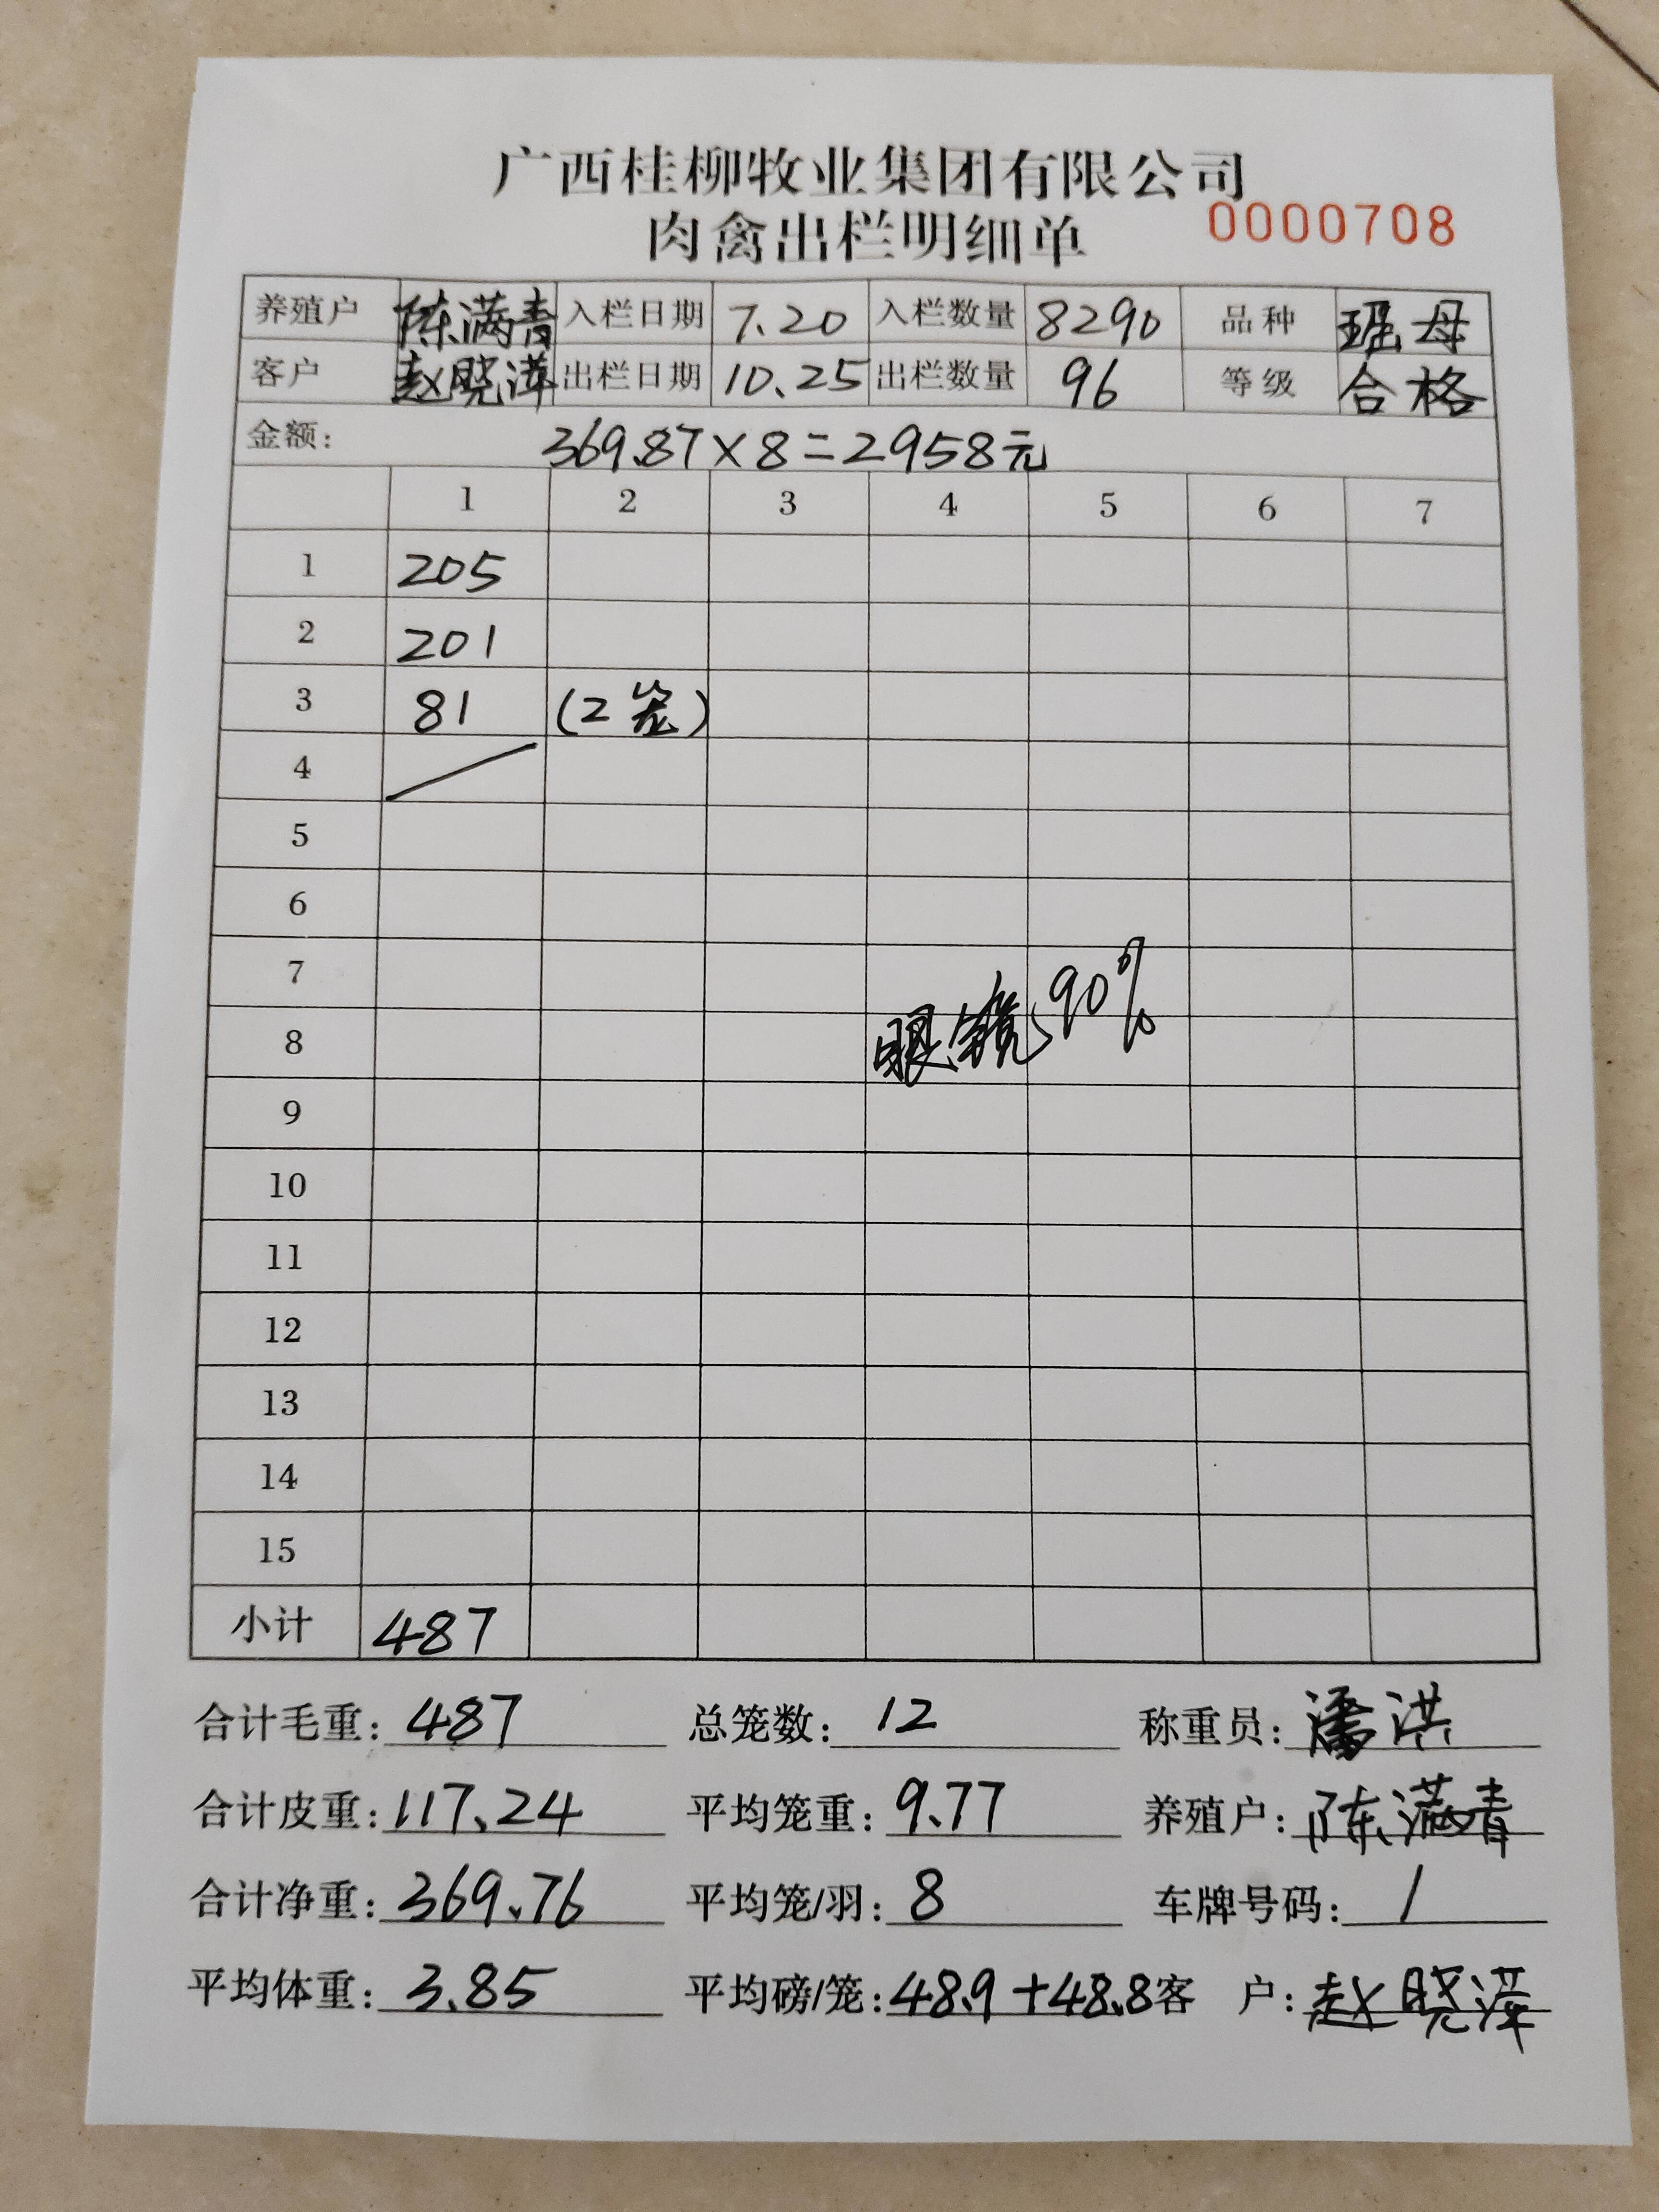 广西桂柳牧业集团有限公司
肉禽出栏明细单 0000708
养殖户 陈满青 入栏日期 7.20 入栏数量 8290 品种 班母
客户 赵晓萍 出栏日期 10.25 出栏数量 96 等级 合格
金额: 369.87×8=2958元
1 2 3 4 5 6 7
1 205
2 201
3 81 (2笼)
4
5
6
7
8 眼镜90%
9
10
11
12
13
14
15
小计 487
合计毛重: 487 总笼数: 12 称重员: 潘洪
合计皮重: 117.24 平均笼重: 9.77 养殖户: 陈满青
合计净重: 369.76 平均笼/羽: 8 车牌号码: /
平均体重: 3.85 平均磅/笼: 48.9+48.8 客 户: 赵晓萍